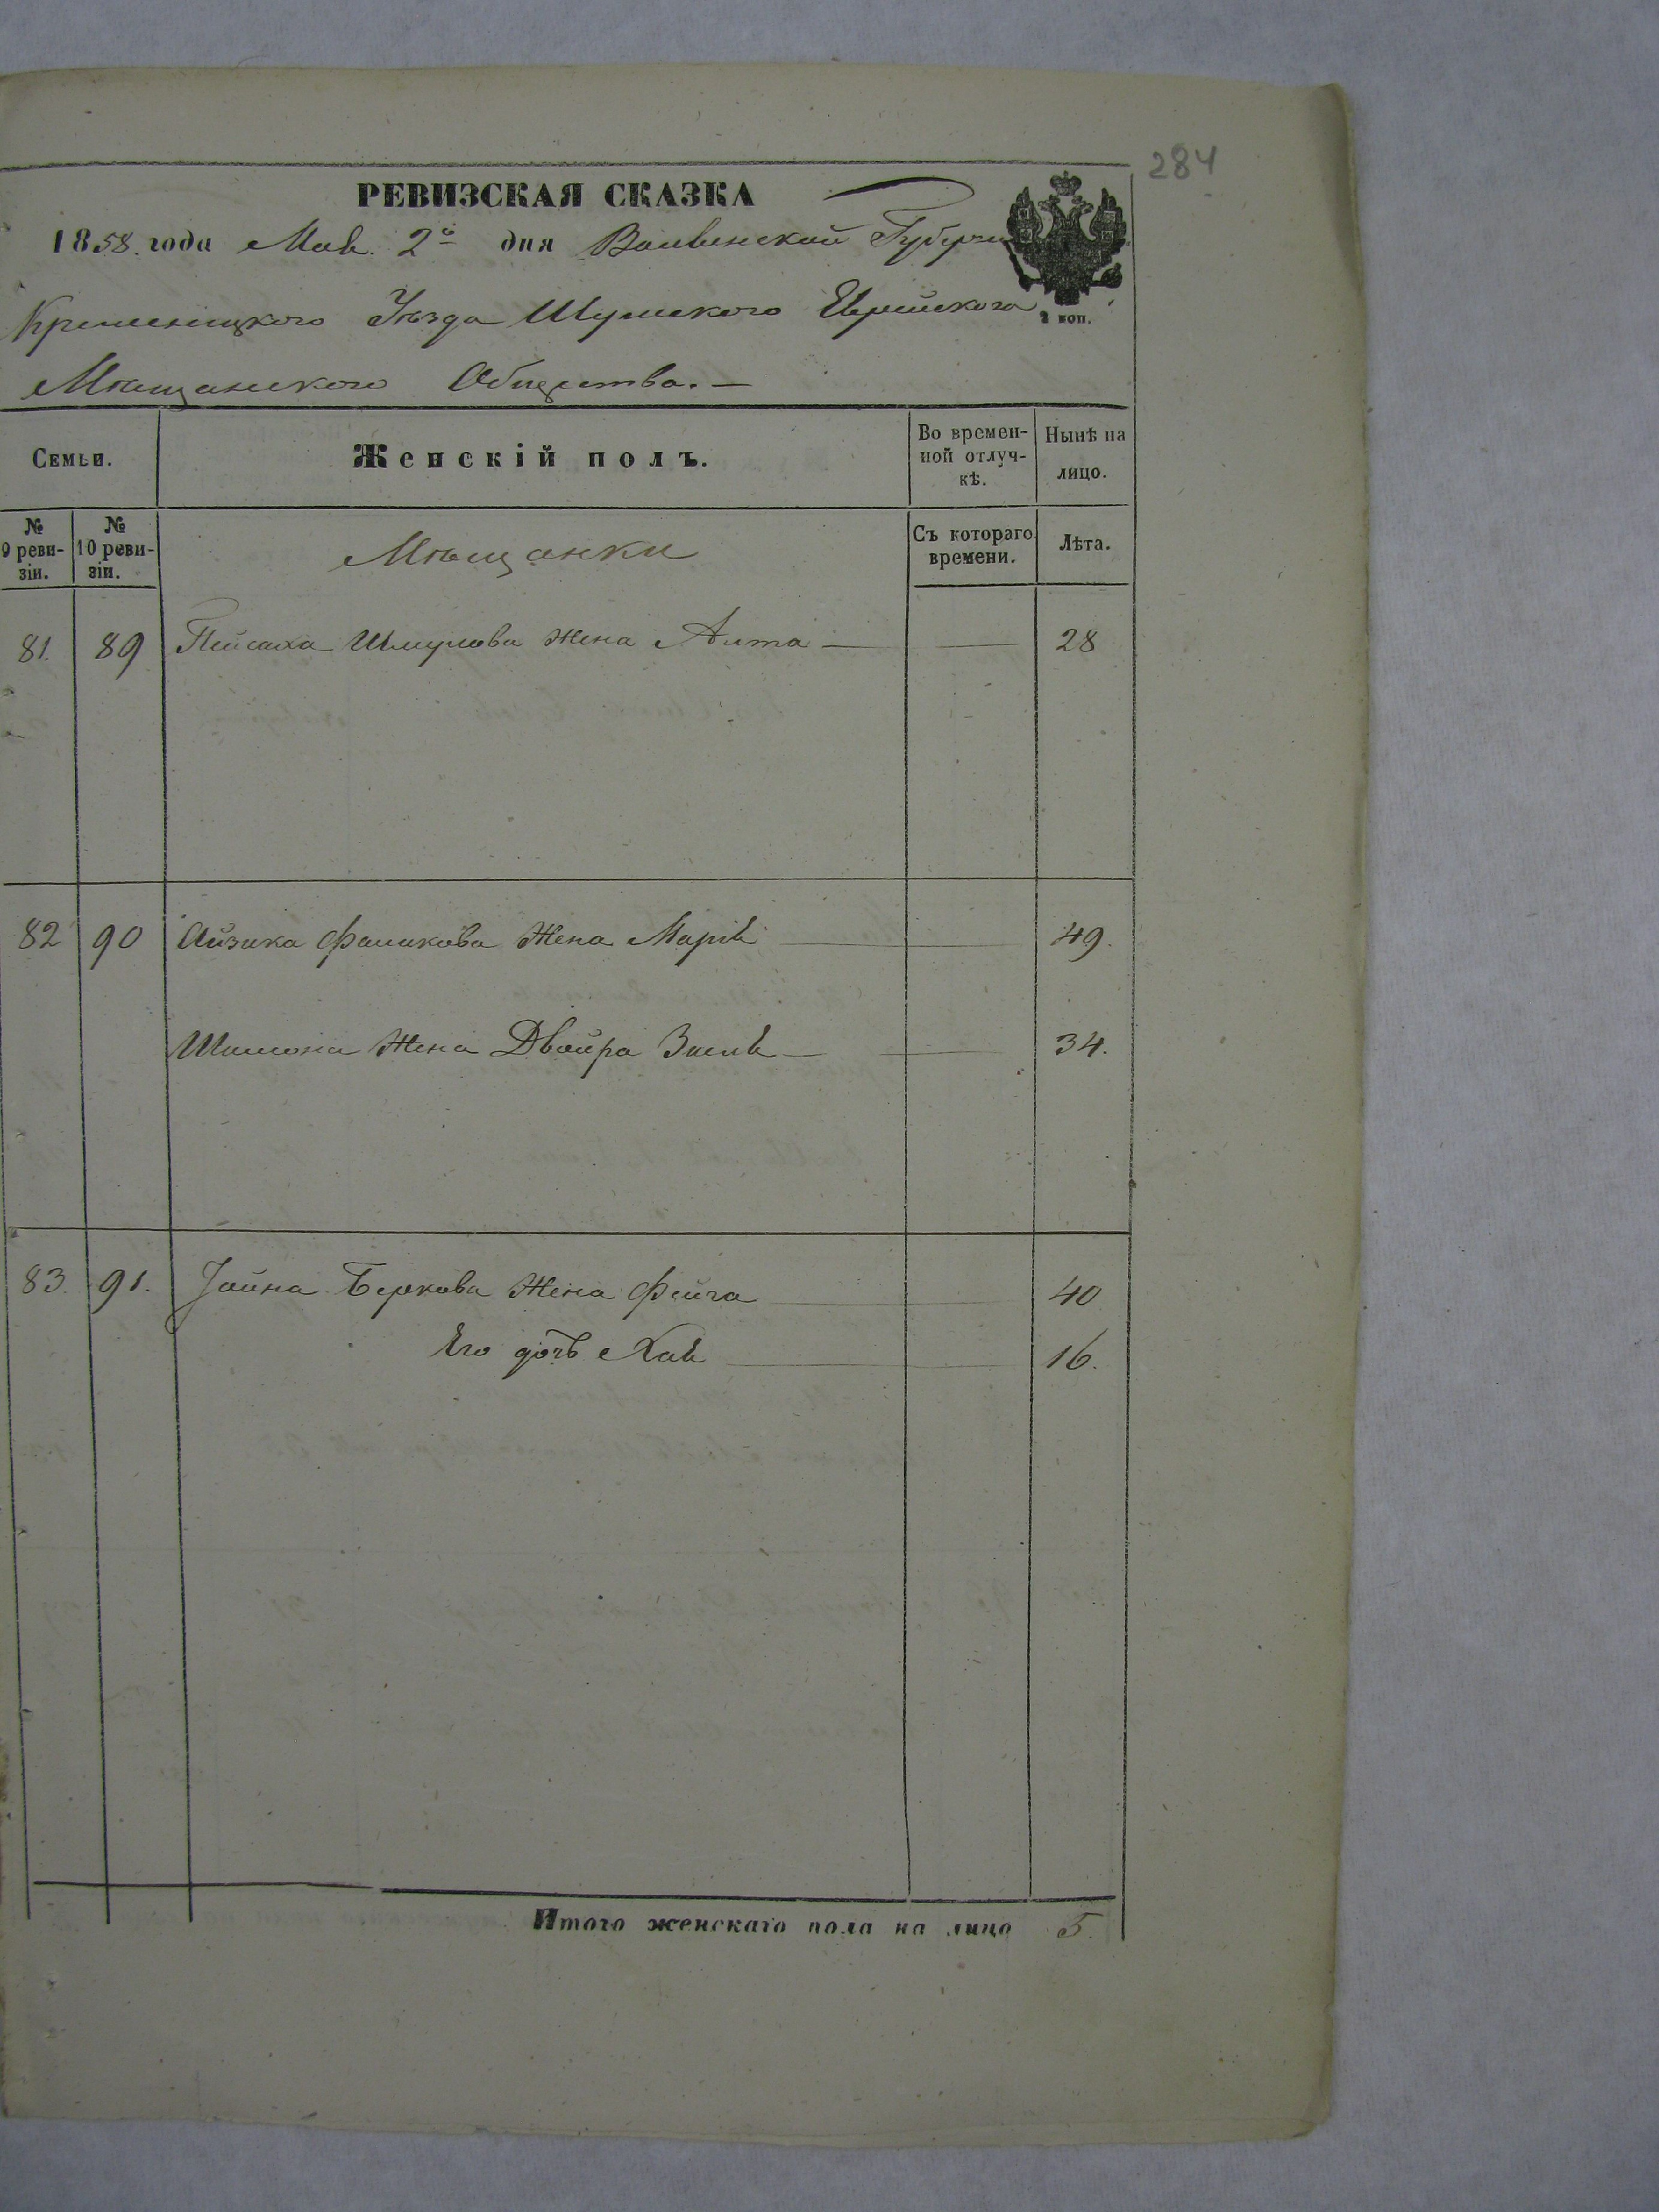 284
РЕВИЗСКАЯ СКАЗКА
1858. года Маія 2го дня Волынской Губерніи
2 коп.
Кременецкого Уѣзда Шумского Еврейского
Мѣщанского Общества. —
Семьи.
Женскій полъ.
Во времен-
ной отлуч-
кѣ.
Нынѣ на
лицо.
№
9 реви-
зіи.
№
10 реви-
зіи.
Мѣщанки
Съ котораго
времени.
Лѣта.
81. 89 Пейсаха Шмулова Жена Алта — — 28
82 90 Айзика Фаликова Жена Марія — 49.
Шимона Жена Двойра Зисля — — 34.
83. 91. Іойна Беркова Жена Фейга — 40
Его дочь Хая — 16.
Итого женскаго пола на лицо 5.